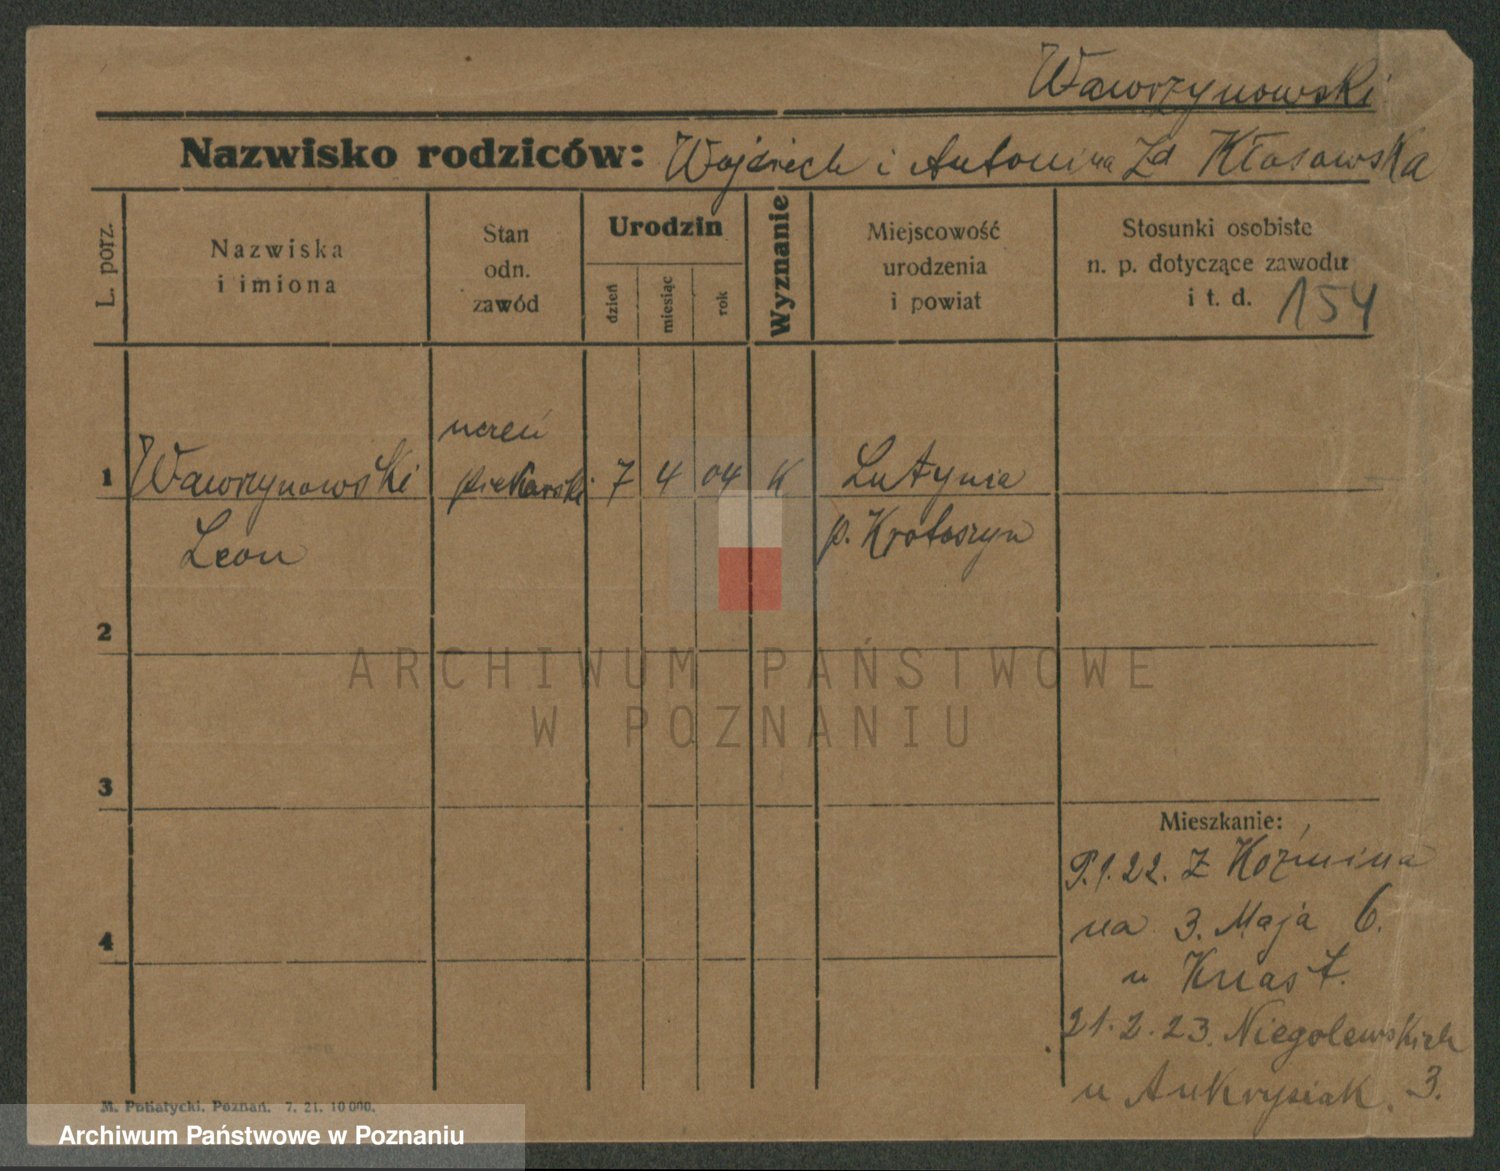 Wawrzynowski
Nazwisko rodziców: Wojciech i Antonina Zd Kłosowska
L. porz.
Nazwiska
i imiona
Stan
odn.
zawód
Urodzin
dzień
miesiąc
rok
Wyznanie
Miejscowość
urodzenia
i powiat
Stosunki osobiste
n. p. dotyczące zawodu
i t. d. 154
uczeń
1 Wawrzynowski piekarski 7 4 04 K Lutynia
Leon p. Krotoszyn
2
3
4
Mieszkanie:
1.22. Z Koźmina
na 3. Maja 6.
u Knast.
21.2.23. Niegolewskich
u Ankrysiak. 3.
M. Putiatycki, Poznań. 7. 21. 10 000.
ARCHIWUM PAŃSTWOWE
W POZNANIU
Archiwum Państwowe w Poznaniu